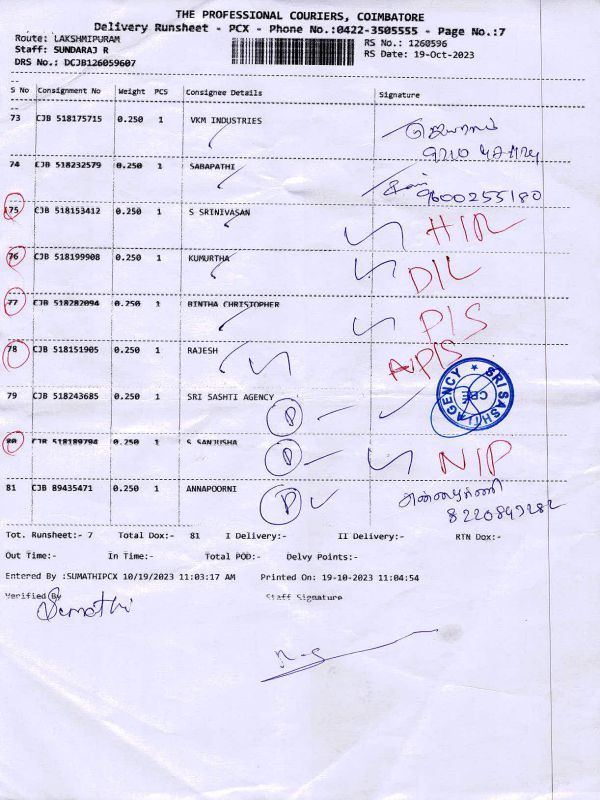 THE PROFESSIONAL COURIERS, COIMBATORE
Delivery Runsheet - PCX - Phone No.:0422-3505555 - Page No.:7
Route: LAKSHMIPURAM RS No.: 1260596
Staff: SUNDARAJ R RS Date: 19-Oct-2023
DRS No.: DCJB126059607
S No Consignment No Weight PCS Consignee Details Signature
73 CJB 518175715 0.250 1 VKM INDUSTRIES
74 CJB 518232579 0.250 1 SABAPATHI
9600255180
75 CJB 518153412 0.250 1 S SRINIVASAN
76 CJB 518199908 0.250 1 KUMURTHA DIL
77 CJB 518282094 0.250 1 BINTHA CHRISTOPHER PIS
78 CJB 518151905 0.250 1 RAJESH
79 CJB 518243685 0.250 1 SRI SASHTI AGENCY D
SRI SASHTI AGENCY CBE
80 CJB 518189794 0.250 1 S SANJUSHA D NIP
81 CJB 89435471 0.250 1 ANNAPOORNI D
Tot. Runsheet:- 7 Total Dox:- 81 I Delivery:- II Delivery:- RTN Dox:-
Out Time:- In Time:- Total POD:- Delvy Points:-
Entered By :SUMATHIPCX 10/19/2023 11:03:17 AM Printed On: 19-10-2023 11:04:54
Verified By Staff Signature
Sumathi